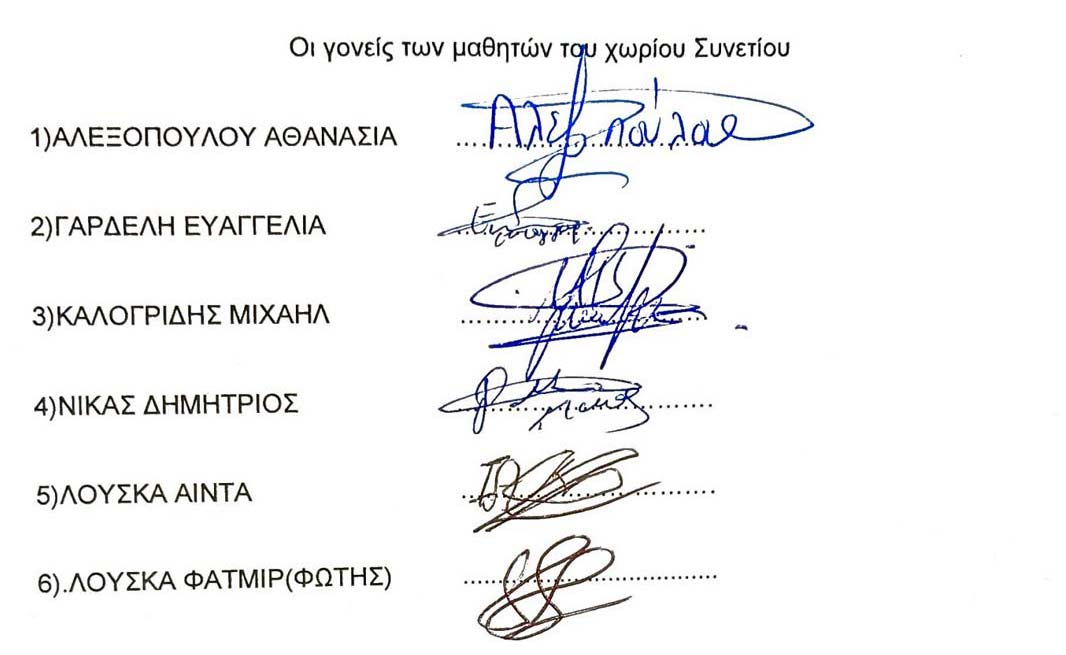 Οι γονείς των μαθητών του χωρίου Συνετίου
1)ΑΛΕΞΟΠΟΥΛΟΥ ΑΘΑΝΑΣΙΑ ....................
2)ΓΑΡΔΕΛΗ ΕΥΑΓΓΕΛΙΑ ....................
3)ΚΑΛΟΓΡΙΔΗΣ ΜΙΧΑΗΛ ....................
4)ΝΙΚΑΣ ΔΗΜΗΤΡΙΟΣ ....................
5)ΛΟΥΣΚΑ ΑΙΝΤΑ ....................
6).ΛΟΥΣΚΑ ΦΑΤΜΙΡ(ΦΩΤΗΣ) ....................